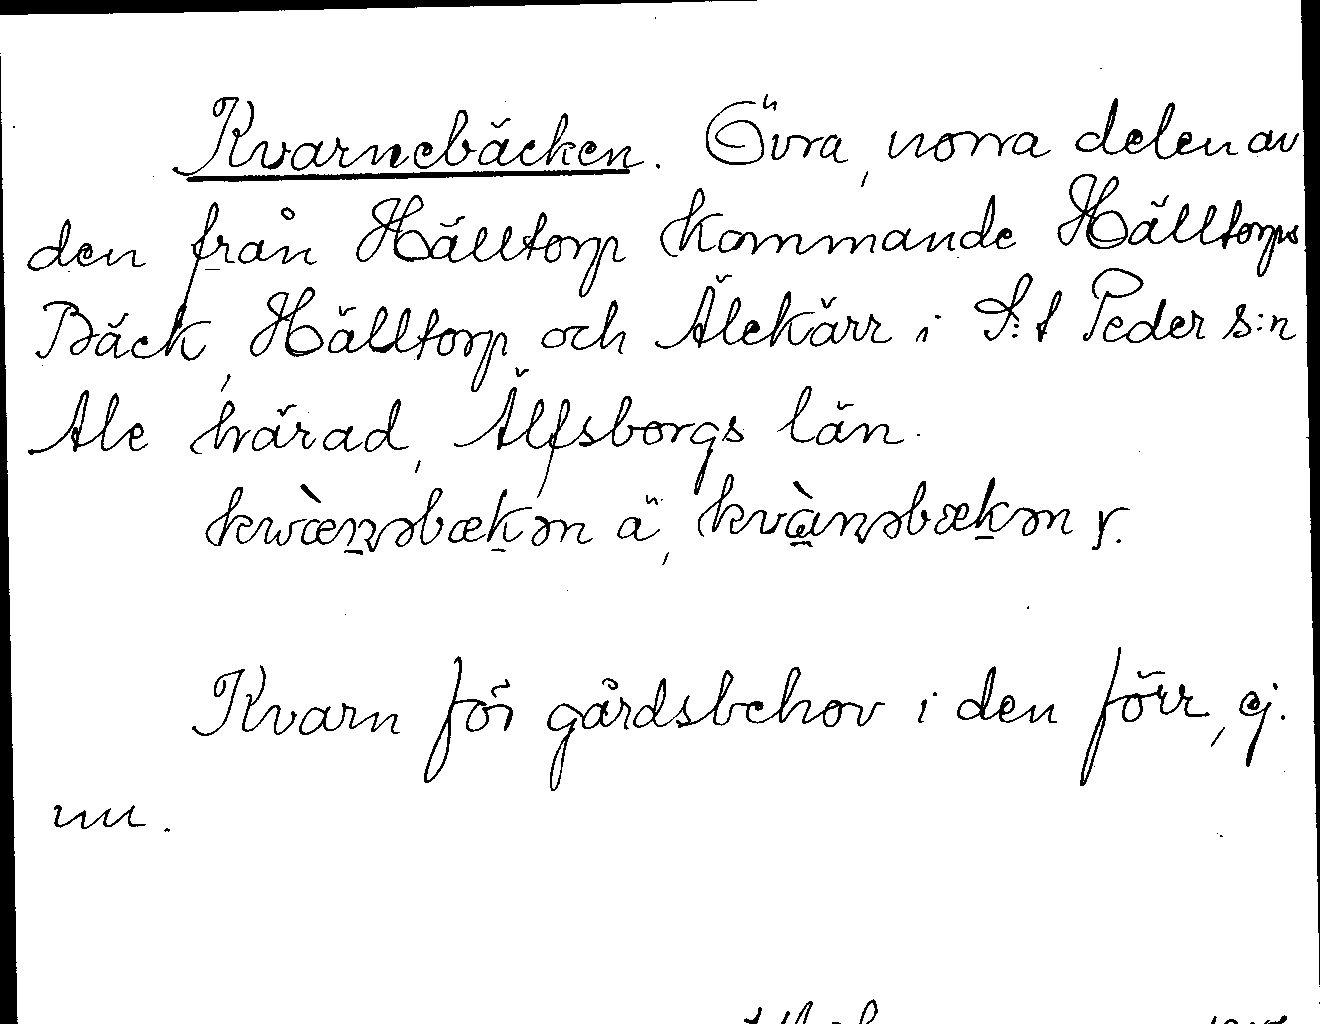 Kvarnebäcken. Övra, norra delen av
den från Hälltorp kommande Hälltorps
Bäck, Hälltorp och Älekärr i S:t Peder s:n
Ale härad, Älfsborgs län.
kwæ̀n̠əbæk̠ən ä, kvàn̠əbæk̠ən y.
Kvarn för gårdsbehov i den förr, ej.
nu.